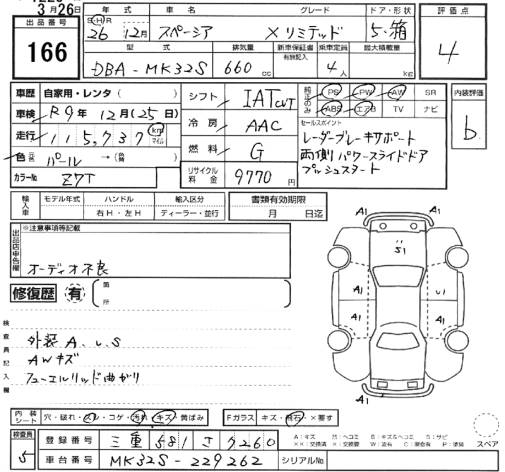 3月26日
出品番号
166
年式 車名 グレード ドア・形状 評価点
S・H・R
26年 12月 スペーシア Xリミテッド 5・箱 4
型式 排気量 新車保証書 有無記入 乗車定員 最大積載量
DBA-MK32S 660 cc 4人 kg
車歴 自家用・レンタ( )
車検 R9年 12月(25日)
走行 115,737 km マイル
色 (元 パール →(替 )
カラーNo Z7T
シフト IAT CVT
冷房 AAC
燃料 G
リサイクル料金 9770円
純正のみ PS PW AW SR
ABS エアB TV ナビ
内装評価
b
セールスポイント
レーダーブレーキサポート
両側パワースライドドア
プッシュスタート
輸入車 モデル年式 ハンドル 輸入区分
右H・左H ディーラー・並行
書類有効期限
月 日迄
出品店申告欄 ※注意事項等記載
オーディオ不良
修復歴 有 箇所
検査員記入欄
外装A、U、S
AWキズ
フューエルリッド曲がり
A1 A1
S1
A1 U1
A1 A1
A1 A1
内装シート 穴・破れ・シミ・コゲ・汚れ・キズ・黄ばみ
Fガラス キズ・飛石・×要す
A:キズ U:ヘコミ B:キズ&ヘコミ S:サビ
××:交換済 ×:交換要 W:波有 C:腐食有 P:塗装
スペア
検査員 5
登録番号 三重 581 さ 7260
車台番号 MK32S-229262
シリアルNo